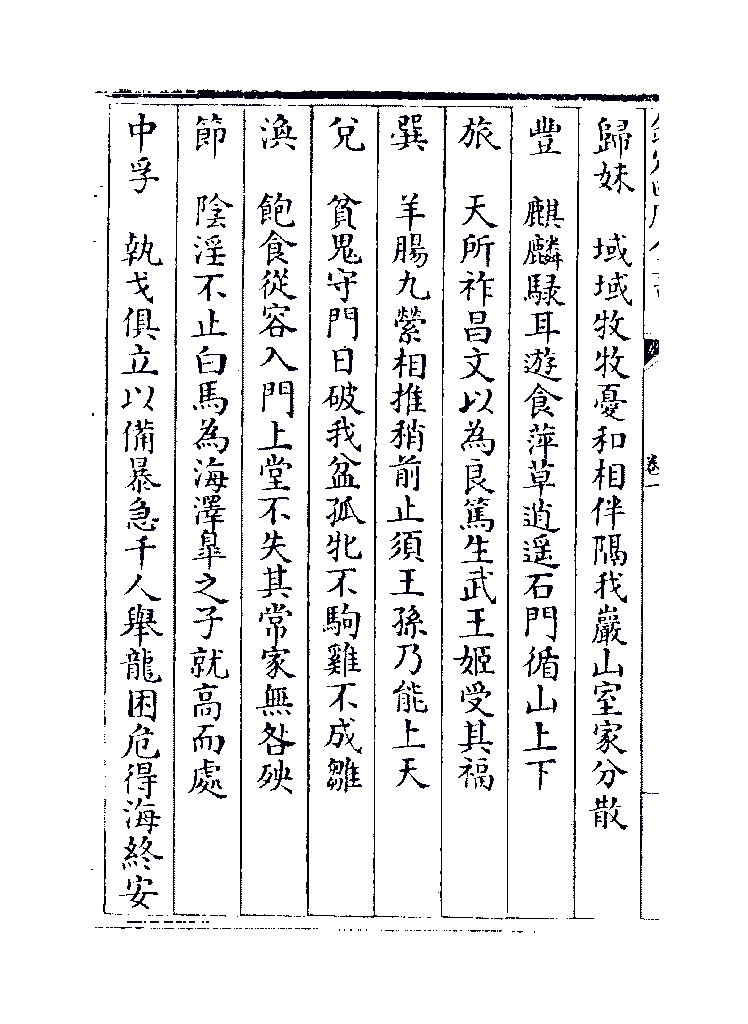 歸妹　域域牧牧憂和相伴隔我巖山室家分散
豐　麒麟騄耳遊食萍草逍遥石門循山上下
旅　天所祚昌文以為良篤生武王姬受其福
巽　羊腸九縈相推稍前止須王孫乃能上天
兌　貧鬼守門日破我盆孤牝不駒雞不成雛
渙　飽食從容入門上堂不失其常家無咎殃
節　陰淫不止白馬為海澤臯之子就高而處
中孚　執戈俱立以備暴急千人舉龍困危得海終安